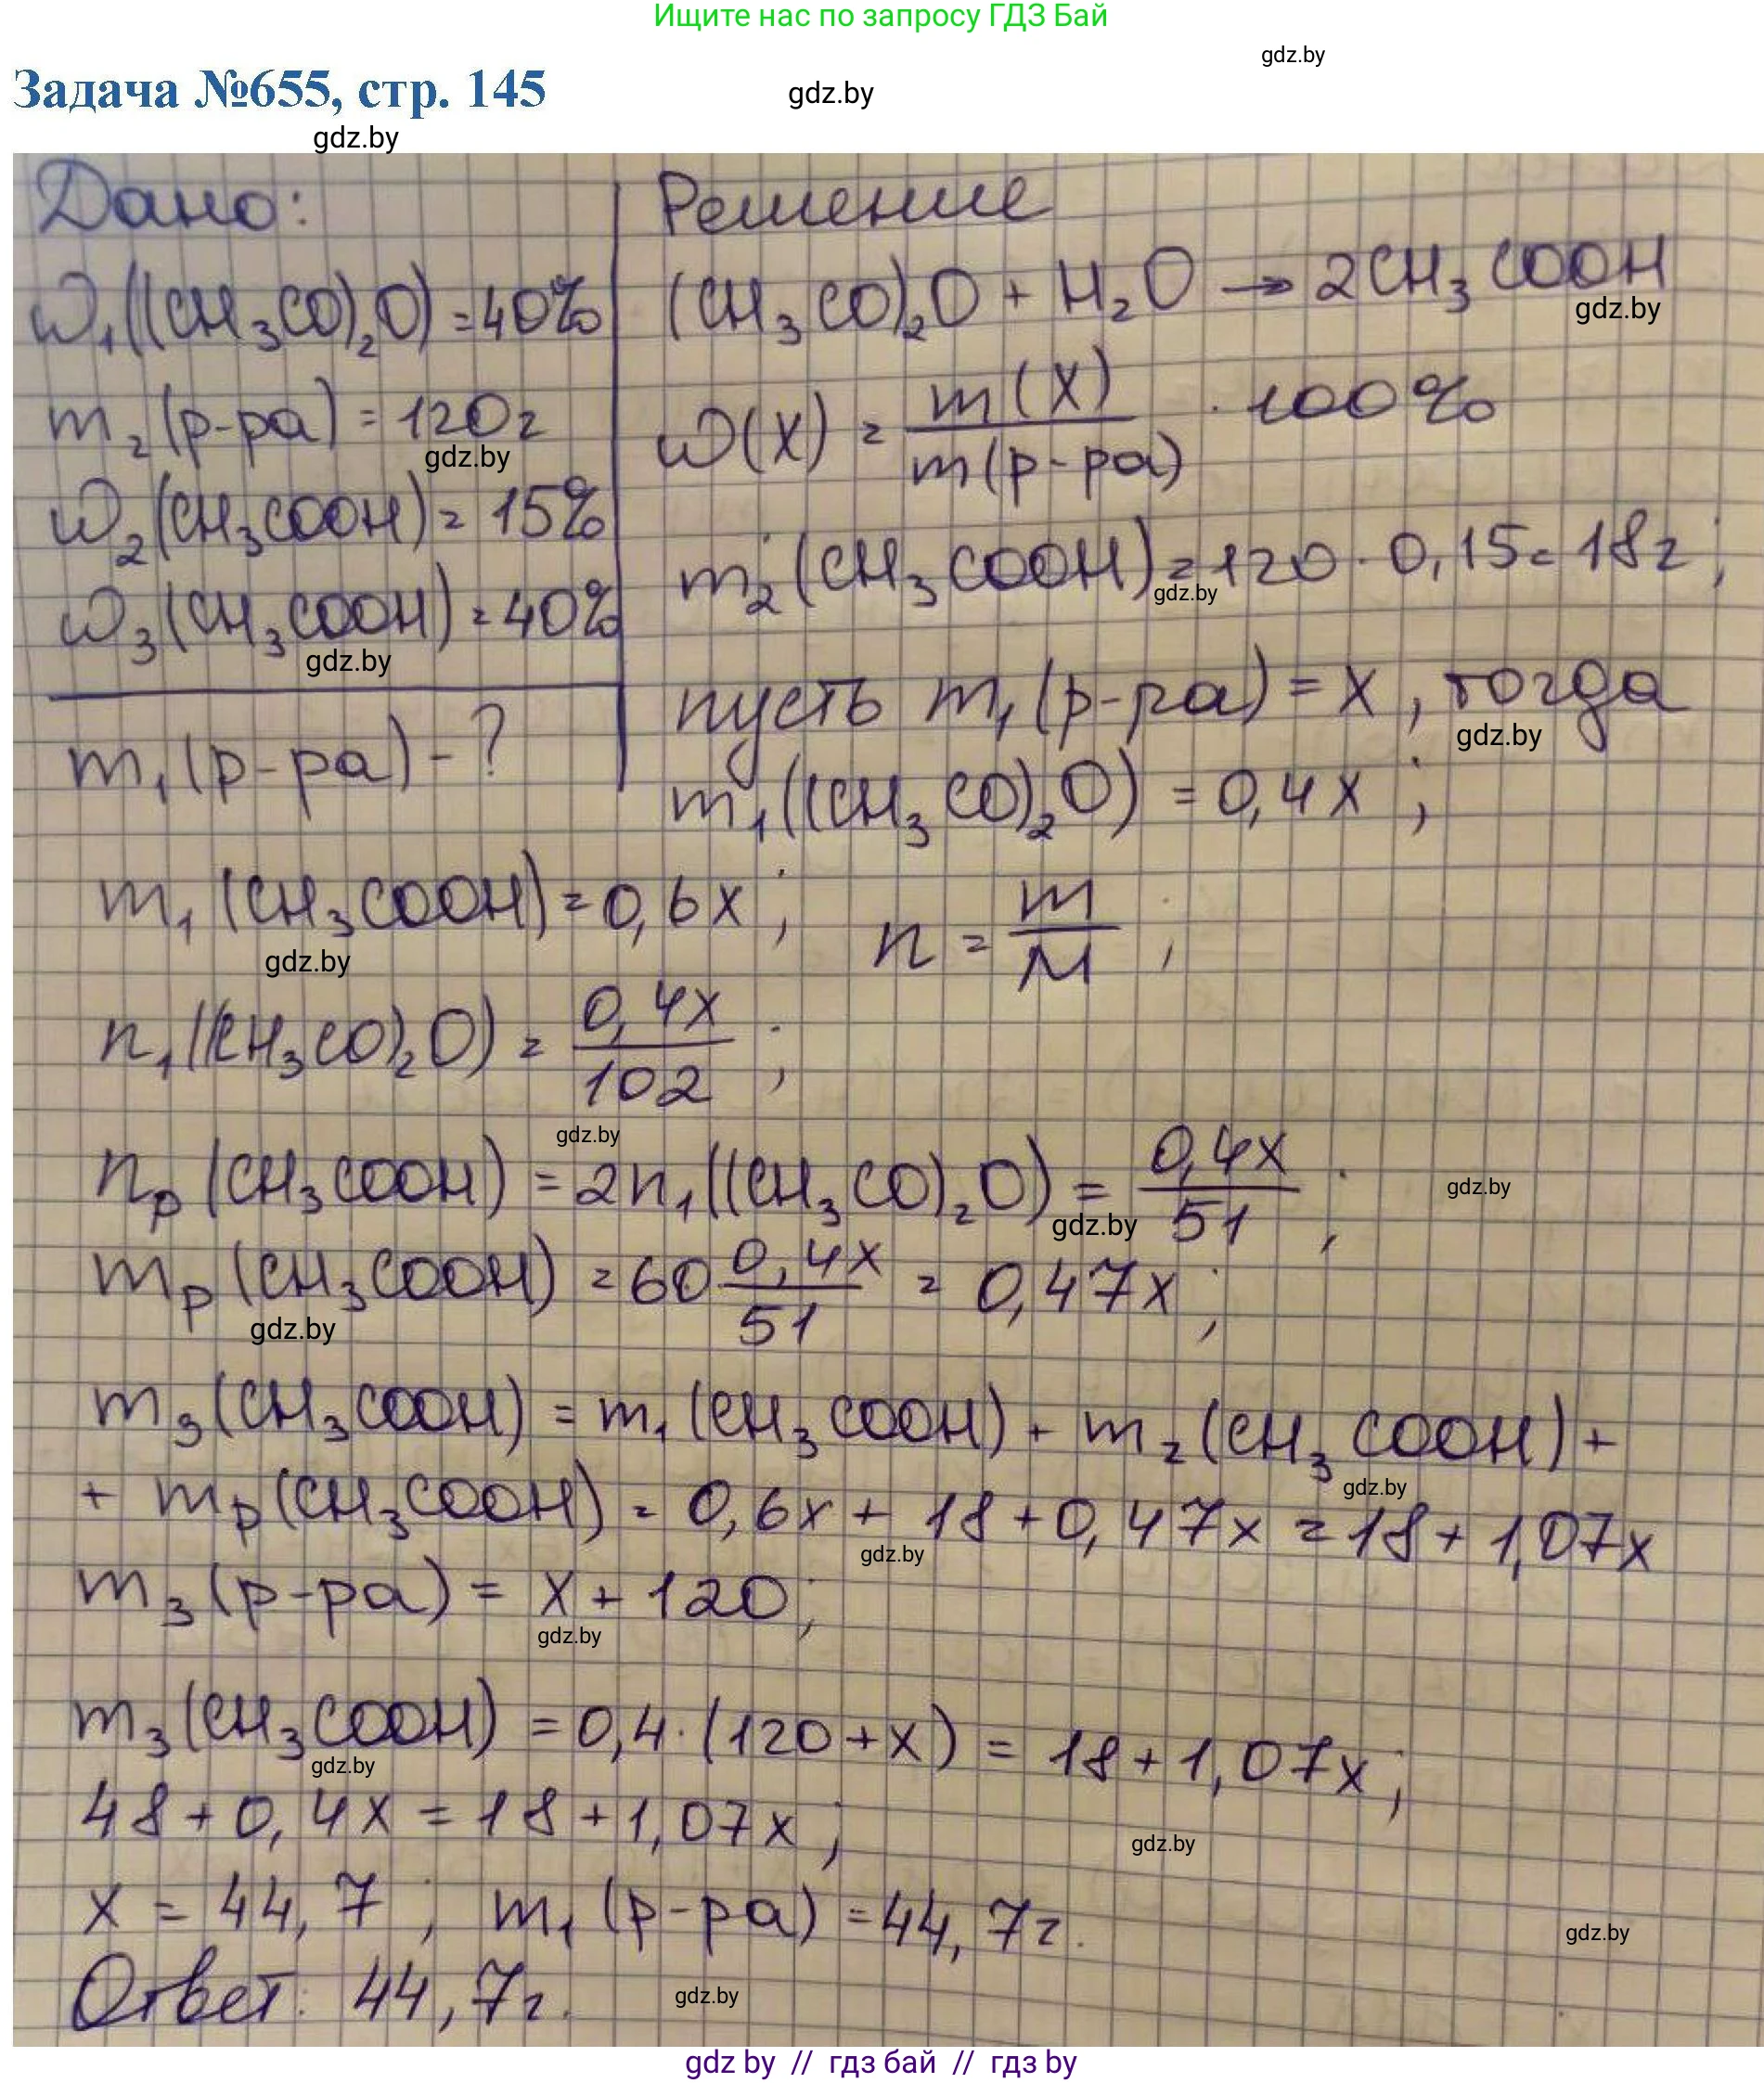 Ищите нас по запросу ГДЗ Бай
gdz.by
Задача №655, стр. 145
gdz.by
gdz.by
Дано:
ω₁((CH₃CO)₂O) = 40%
m₂(р-ра) = 120г
gdz.by
ω₂(CH₃COOH) = 15%
ω₃(CH₃COOH) = 40%
gdz.by
m₁(р-ра) - ?
Решение
(CH₃CO)₂O + H₂O → 2CH₃COOH
gdz.by
ω(X) = m(X) / m(р-ра) · 100%
m₂(CH₃COOH) = 120 · 0,15 = 18г;
gdz.by
пусть m₁(р-ра) = x, тогда
gdz.by
m₁((CH₃CO)₂O) = 0,4x;
m₁(CH₃COOH) = 0,6x; n = m / M;
gdz.by
n₁((CH₃CO)₂O) = 0,4x / 102;
gdz.by
nₚ(CH₃COOH) = 2n₁((CH₃CO)₂O) = 0,4x / 51;
gdz.by
gdz.by
mₚ(CH₃COOH) = 60 0,4x / 51 = 0,47x;
gdz.by
m₃(CH₃COOH) = m₁(CH₃COOH) + m₂(CH₃COOH) +
gdz.by
+ mₚ(CH₃COOH) = 0,6x + 18 + 0,47x = 18 + 1,07x
gdz.by
m₃(р-ра) = x + 120;
gdz.by
m₃(CH₃COOH) = 0,4·(120+x) = 18 + 1,07x;
gdz.by
48 + 0,4x = 18 + 1,07x;
gdz.by
x = 44,7; m₁(р-ра) = 44,7г.
gdz.by
Ответ: 44,7г.
gdz.by
gdz by // гдз бай // гдз by